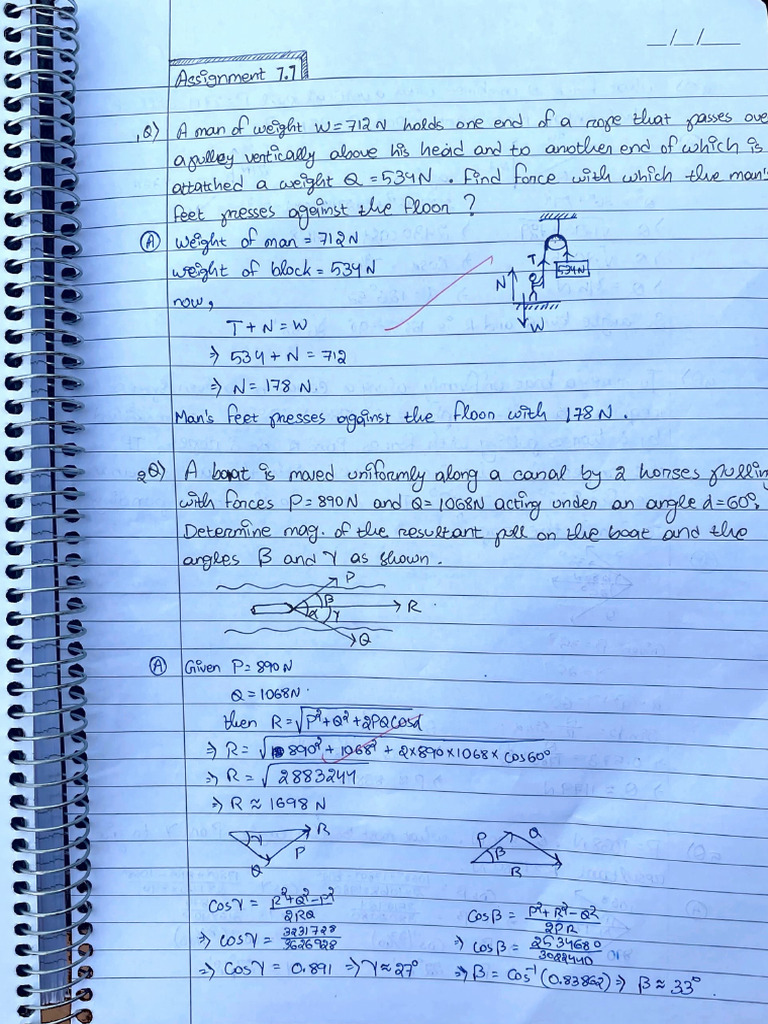 _/_/_
Assignment 7.7
1Q) A man of weight W=712N holds one end of a rope that passes over
a pulley vertically above his head and to another end of which is
attatched a weight Q=534N. Find force with which the man's
feet presses against the floor?
(A) weight of man = 712N
weight of block = 534N
now,
T+N=W
⇒ 534+N = 712
⇒ N = 178 N.
T
534N
N
W
Man's feet presses against the floor with 178N.
2Q) A boat is moved uniformly along a canal by 2 horses pulling
with forces P=890N and Q=1068N acting under an angle α=60°.
Determine mag. of the resultant pull on the boat and the
angles β and γ as shown.
P
β
α γ R
Q
(A) Given P=890N
Q=1068N.
then R=√P²+Q²+2PQcosα
⇒ R=√890²+1068²+2×890×1068×cos60°
⇒ R=√2883244
⇒ R≈1698 N
γ R
Q P
P Q
β
R
cosγ = R²+Q²-P²/2RQ
⇒ cosγ = 3231728/3626928
⇒ cosγ = 0.891 ⇒ γ≈27°
cosβ = P²+R²-Q²/2PR
⇒ cosβ = 2534680/3022440
⇒ β = cos⁻¹(0.83862) ⇒ β≈33°.